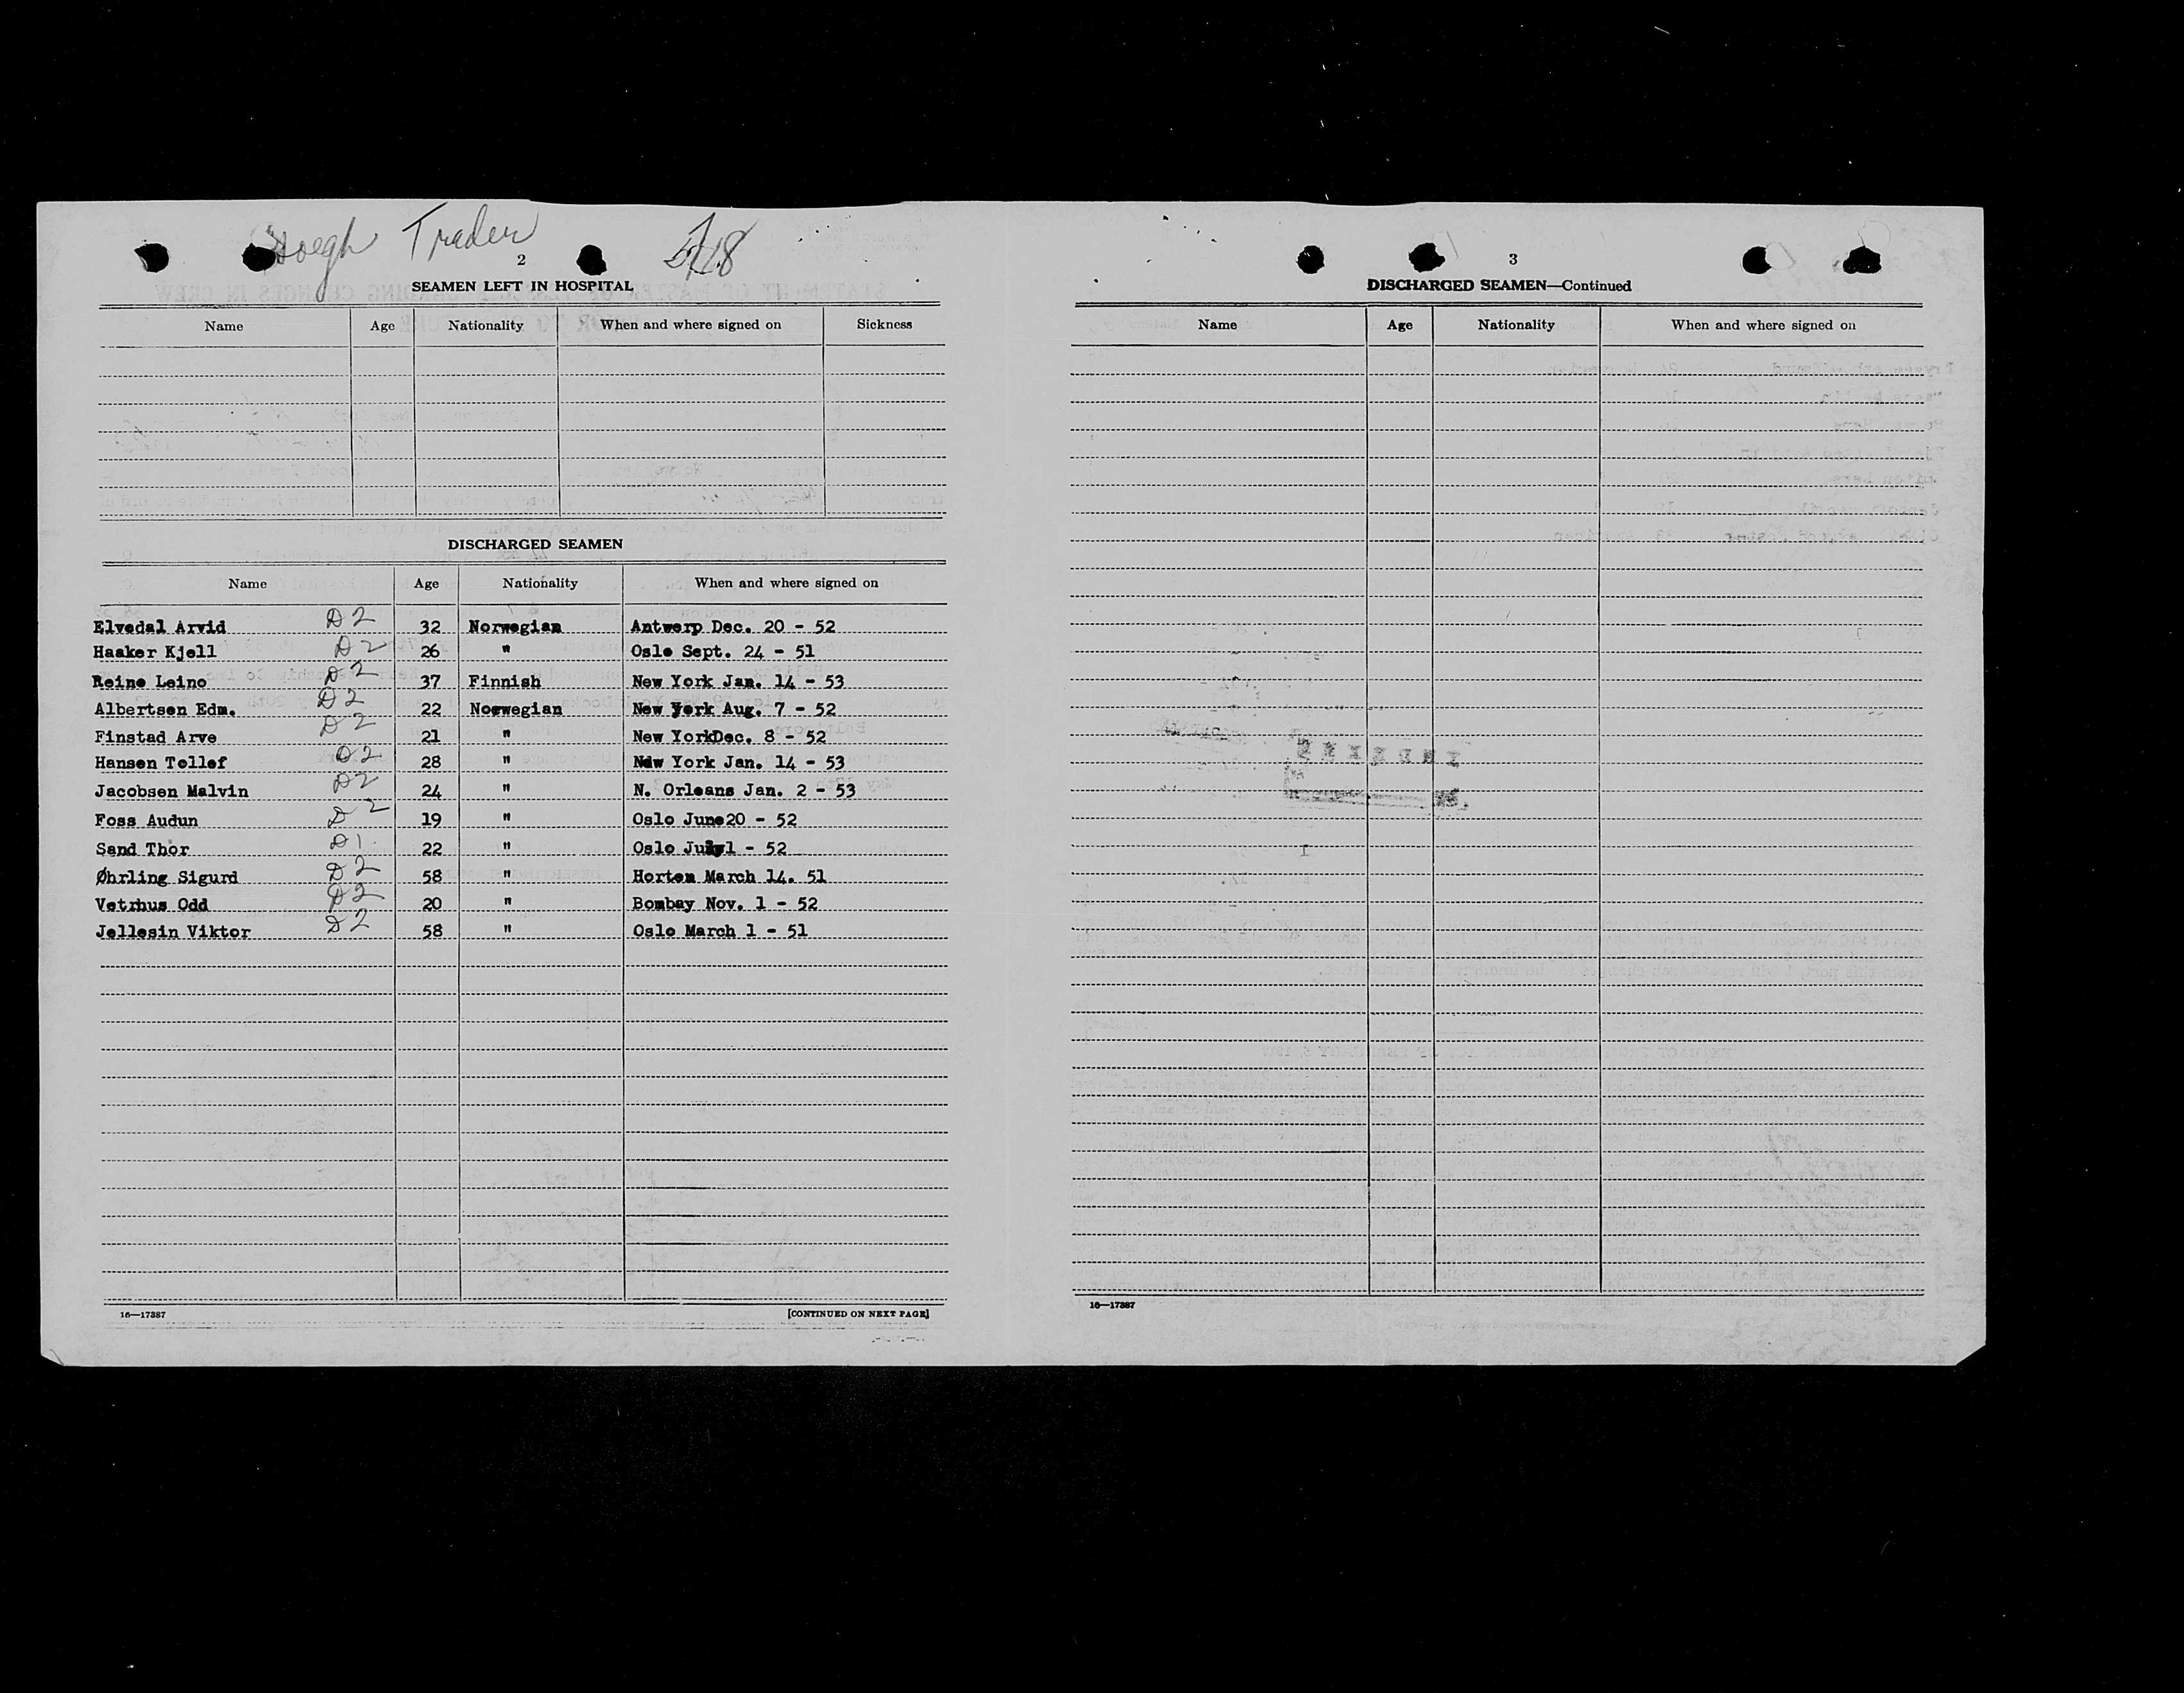 Hoegh Trader
2
SEAMEN LEFT IN HOSPITAL
Name Age Nationality When and where signed on Sickness
DISCHARGED SEAMEN
Name Age Nationality When and where signed on
Elvedal Arvid D2 32 Norwegian Antwerp Dec. 20 - 52
Haaker Kjell D2 26 " Oslo Sept. 24 - 51
Reino Leino D2 37 Finnish New York Jan. 14 - 53
Albertsen Edm. D2 22 Norwegian New York Aug. 7 - 52
Finstad Arve D2 21 " New YorkDec. 8 - 52
Hansen Tollef D2 28 " New York Jan. 14 - 53
Jacobsen Malvin D2 24 " N. Orleans Jan. 2 - 53
Foss Audun D2 19 " Oslo June20 - 52
Sand Thor D1 22 " Oslo July1 - 52
Øhrling Sigurd D2 58 " Horten March 14. 51
Vetrhus Odd D2 20 " Bombay Nov. 1 - 52
Jellesin Viktor D2 58 " Oslo March 1 - 51
16—17387 [CONTINUED ON NEXT PAGE]
3
DISCHARGED SEAMEN—Continued
Name Age Nationality When and where signed on
16—17387